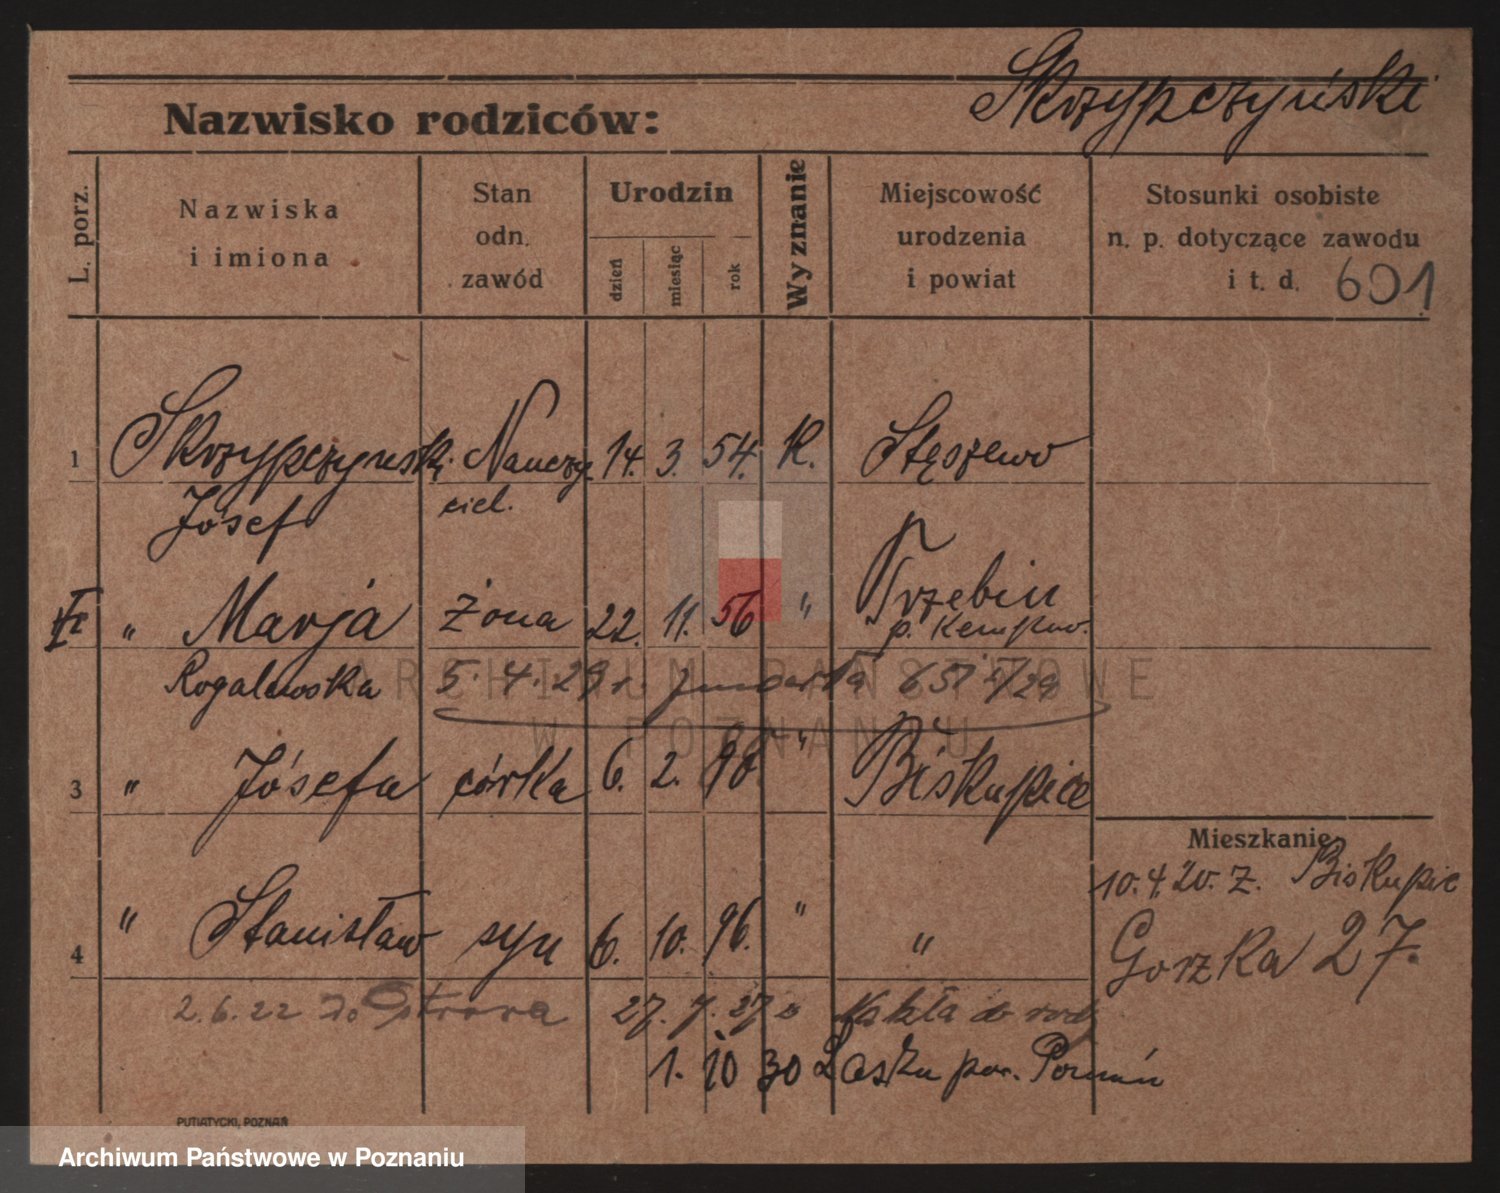 Skrzypczyński
Nazwisko rodziców:
L. porz.
Nazwiska
i imiona
Stan
odn.
zawód
Urodzin
dzień
miesiąc
rok
Wyznanie
Miejscowość
urodzenia
i powiat
Stosunki osobiste
n. p. dotyczące zawodu
i t. d. 601
1 Skrzypczyński Nauczy 14. 3. 54. K. Stęszewo
Józef ciel.
II " Marja żona 22. 11. 56 " Trzebin
p. Kempno.
Rogalewska 5. 4. 29 r. zmarła 651/29
3 " Józefa córka 6. 2. 98 " Biskupice
Mieszkanie
10.4.20. Z. Biskupic
4 " Stanisław syn 6. 10. 96. " "
Gorzka 27.
2.6.22 do Ostrowa 27. 7. 27 do
1. 10 30 Lasku pow. Poznań
PUTIATYCKI, POZNAŃ
ARCHIWUM PAŃSTWOWE
W POZNANIU
Archiwum Państwowe w Poznaniu